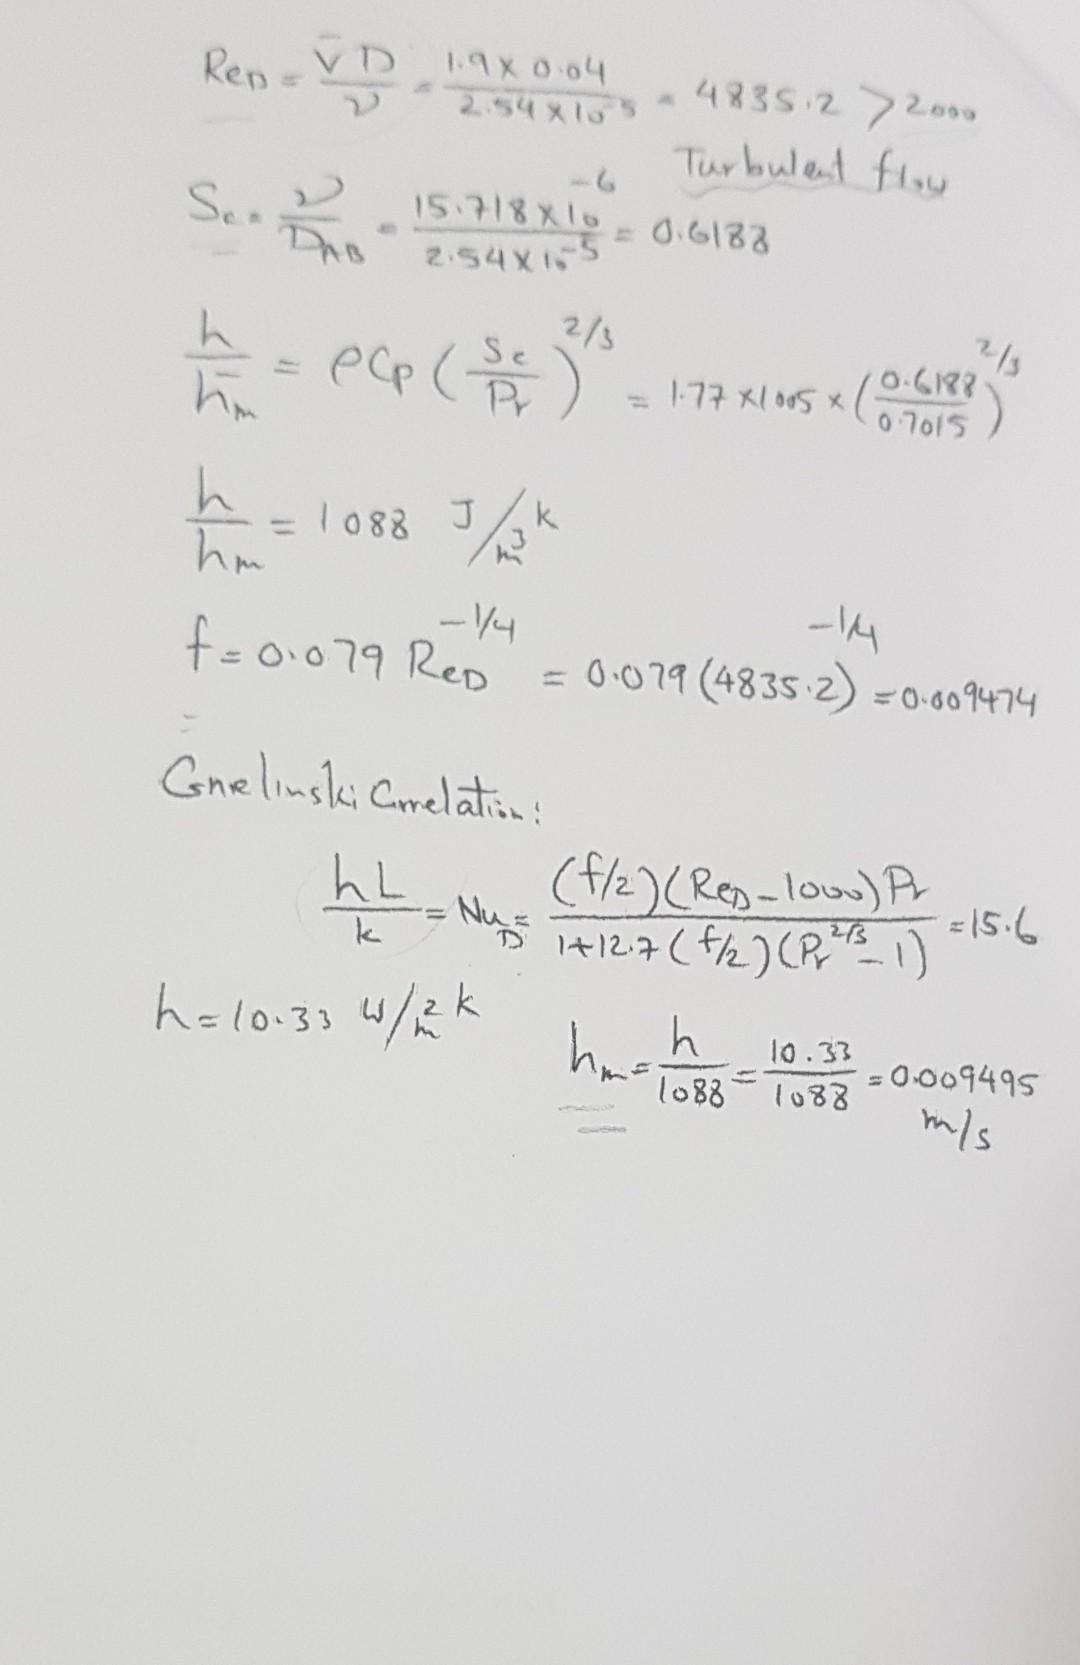 Re_D = V̄ D / ν = 1.9 × 0.04 / 2.54 × 10^-5 = 4835.2 > 2000
Turbulent flow
Sc = ν / D_AB = 15.718 × 10^-6 / 2.54 × 10^-5 = 0.6188
h / h̄m = ρCp (Sc / Pr)^2/3 = 1.77 × 1005 × (0.6188 / 0.7015)^2/3
h / hm = 1088 J/m³k
f = 0.079 Re_D^-1/4 = 0.079 (4835.2)^-1/4 = 0.009474
Gnelinski Correlation:
hL / k = Nu_D = (f/2)(Re_D - 1000) Pr / 1 + 12.7 (f/2)(Pr^2/3 - 1) = 15.6
h = 10.33 W/m²k
hm = h / 1088 = 10.33 / 1088 = 0.009495
m/s